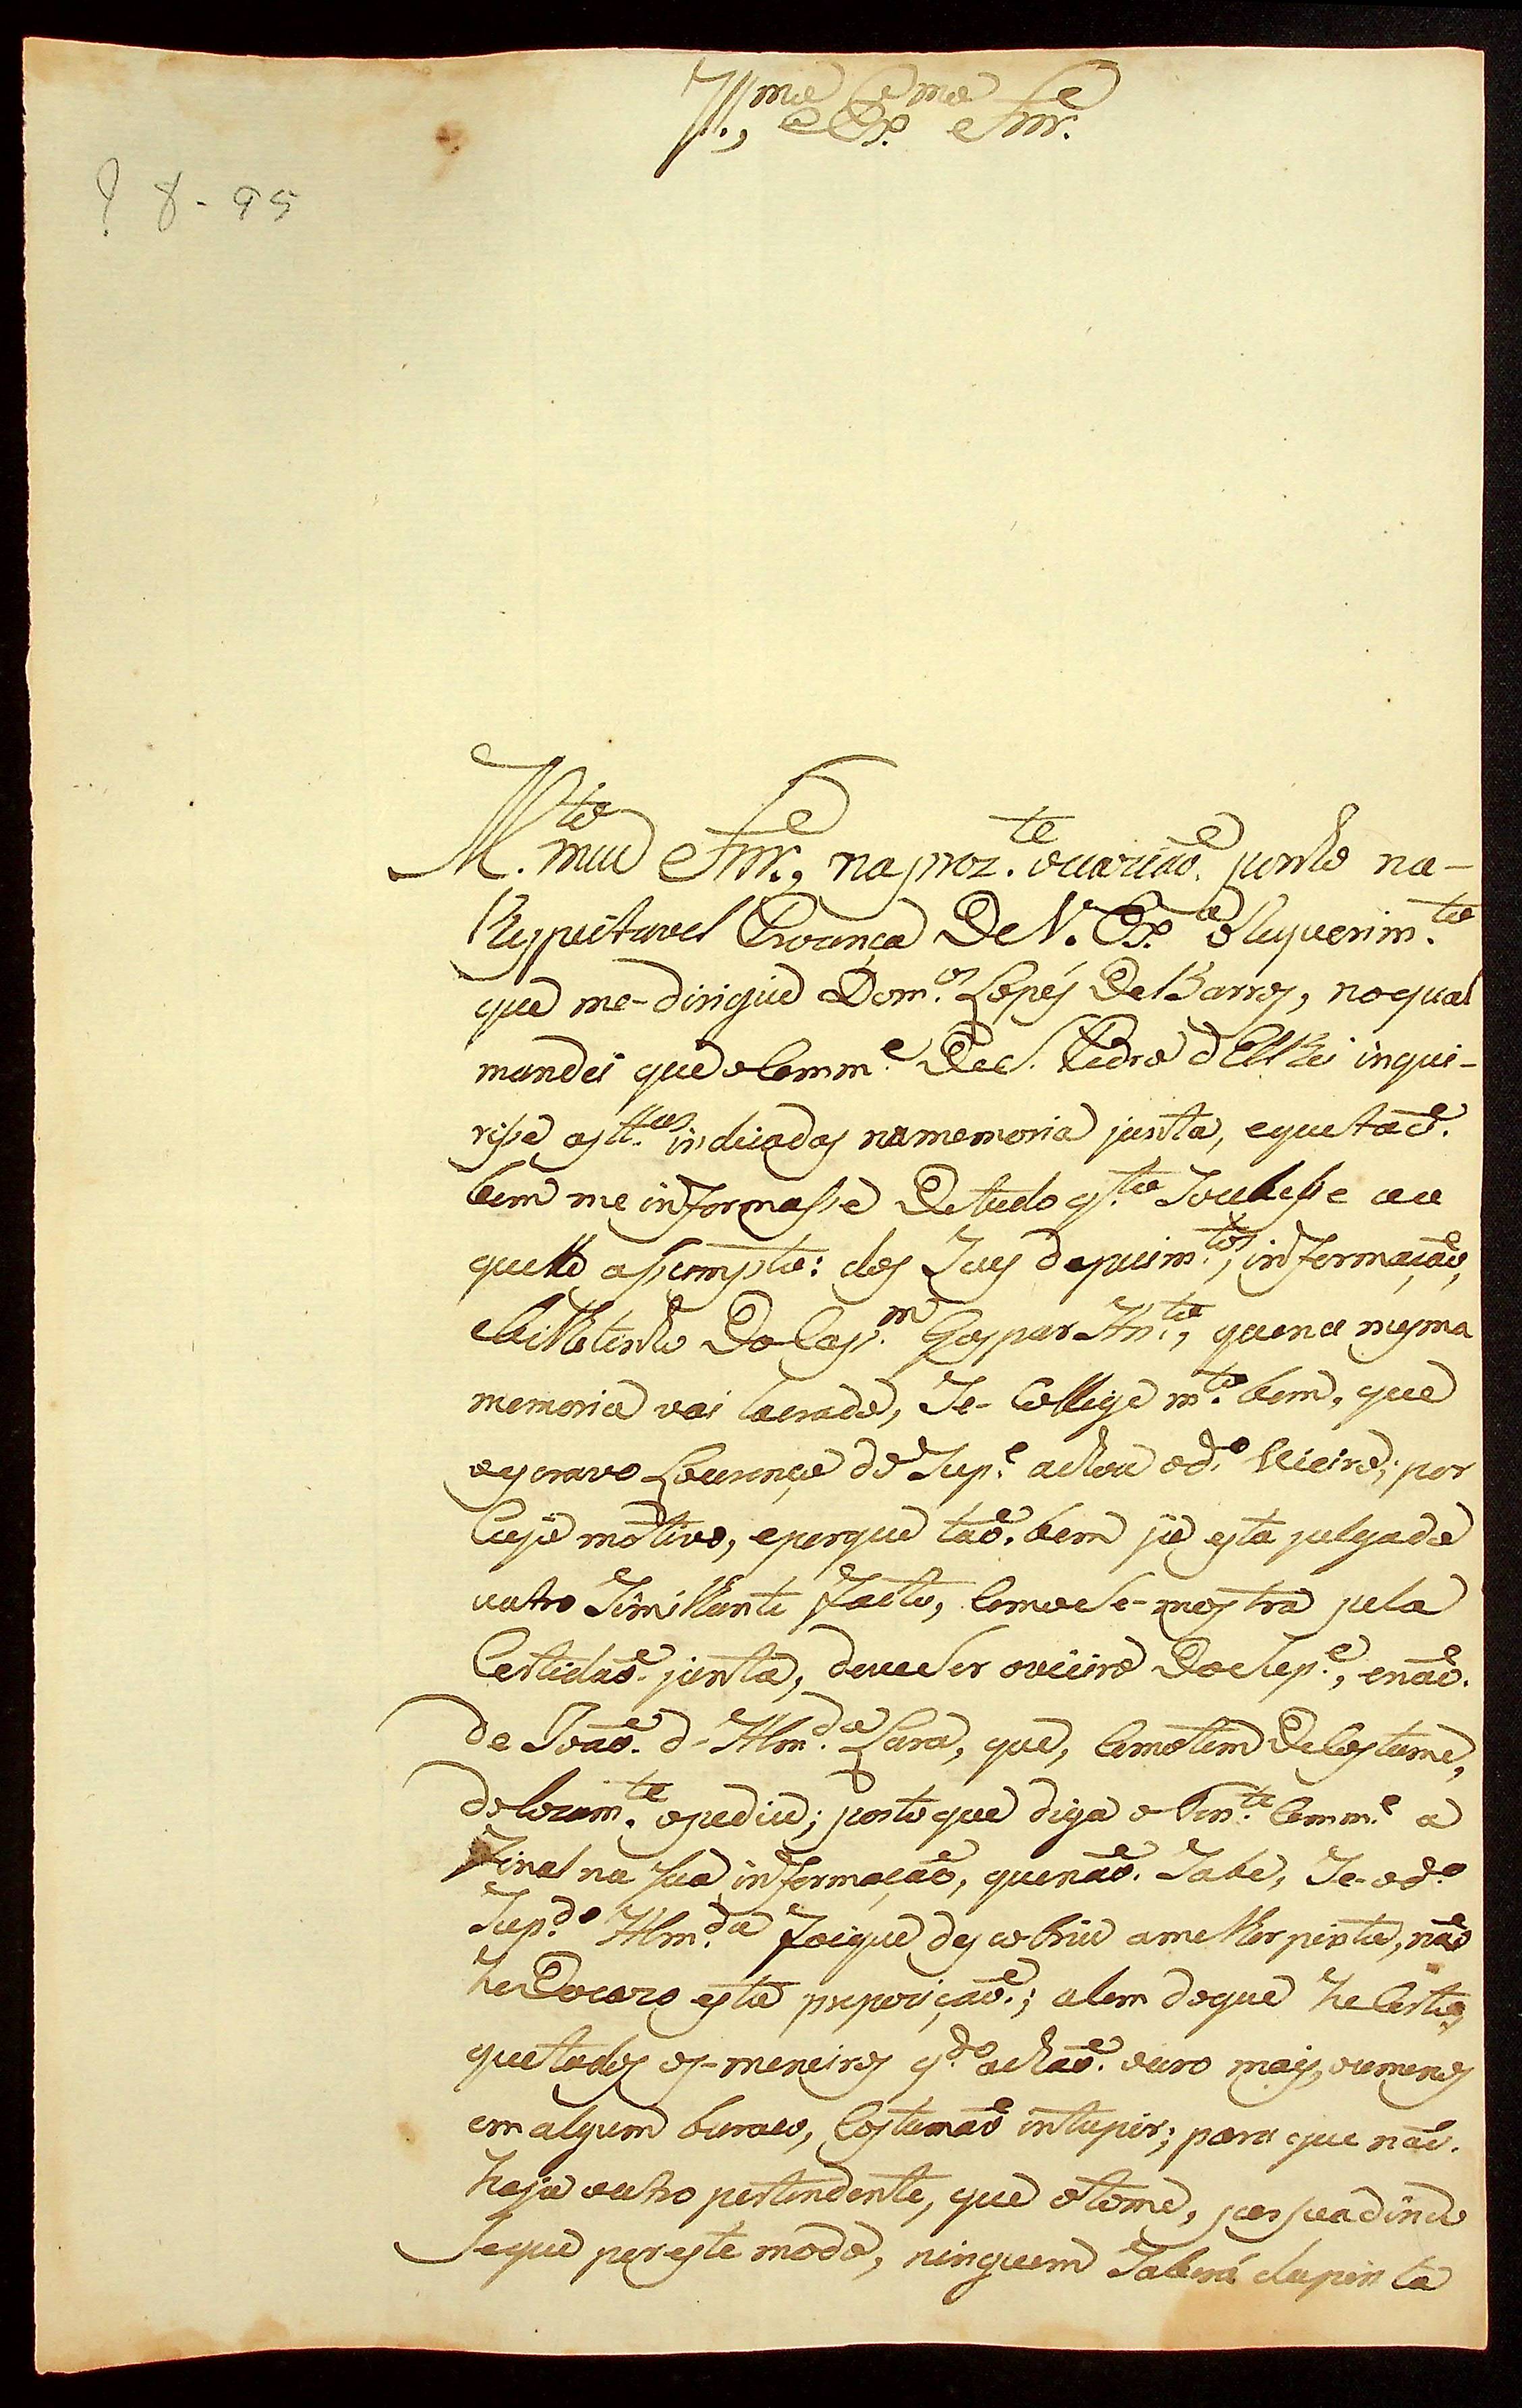 Ill.mo e Ex.mo Snr.
8-95
M.to meu Snr., na prez.te occazião ponho na-
Respeitavel Prezença De V. Ex.a o Requerim.to
que me-dirigio Dom.os Lopes De Barros, no qual
mandei que o Comm.e De S. Pedro d'ElRei inqui-
risse as tt.as indicadas na memoria junta, e que tão.
bem me informasse De tudo q.to Soubesse a a
quelle assumpto: dos Seus depuim.tos, informação,
e bilhetinho Do Cap.m Gaspar An.to, que na mesma
memoria vai lacrado, Se-Collige m.to bem, que
o escravo Lourenço do Sup.e achou o d.o Vieiro; por
Cujo motivo, e porque tão.bem já esta julgado
outro Similhante facto, Como Se-mostra pela
Certidão junta, deve Ser o vieiro Do Sup.e, e não.
de João. d'Alm.da Lara, que, Como tem De Costume,
dolozam.te o pediu; posto que diga o Ten.te Comm.e a
Final na Sua informação, que não. Sabe, Se-o d.o
Sup.do Alm.da foi que descobriu a melhor pinta, não
he Do cazo esta propozição.; alem de que he Certo,
que todos os-meneiros q.do achão. ouro mais, ou menos
em algum buraco, Costumão intupir; para que não.
haja outro pertendente, que o tome, persuadindo
Se que por este modo, ninguem Saberá da pinta